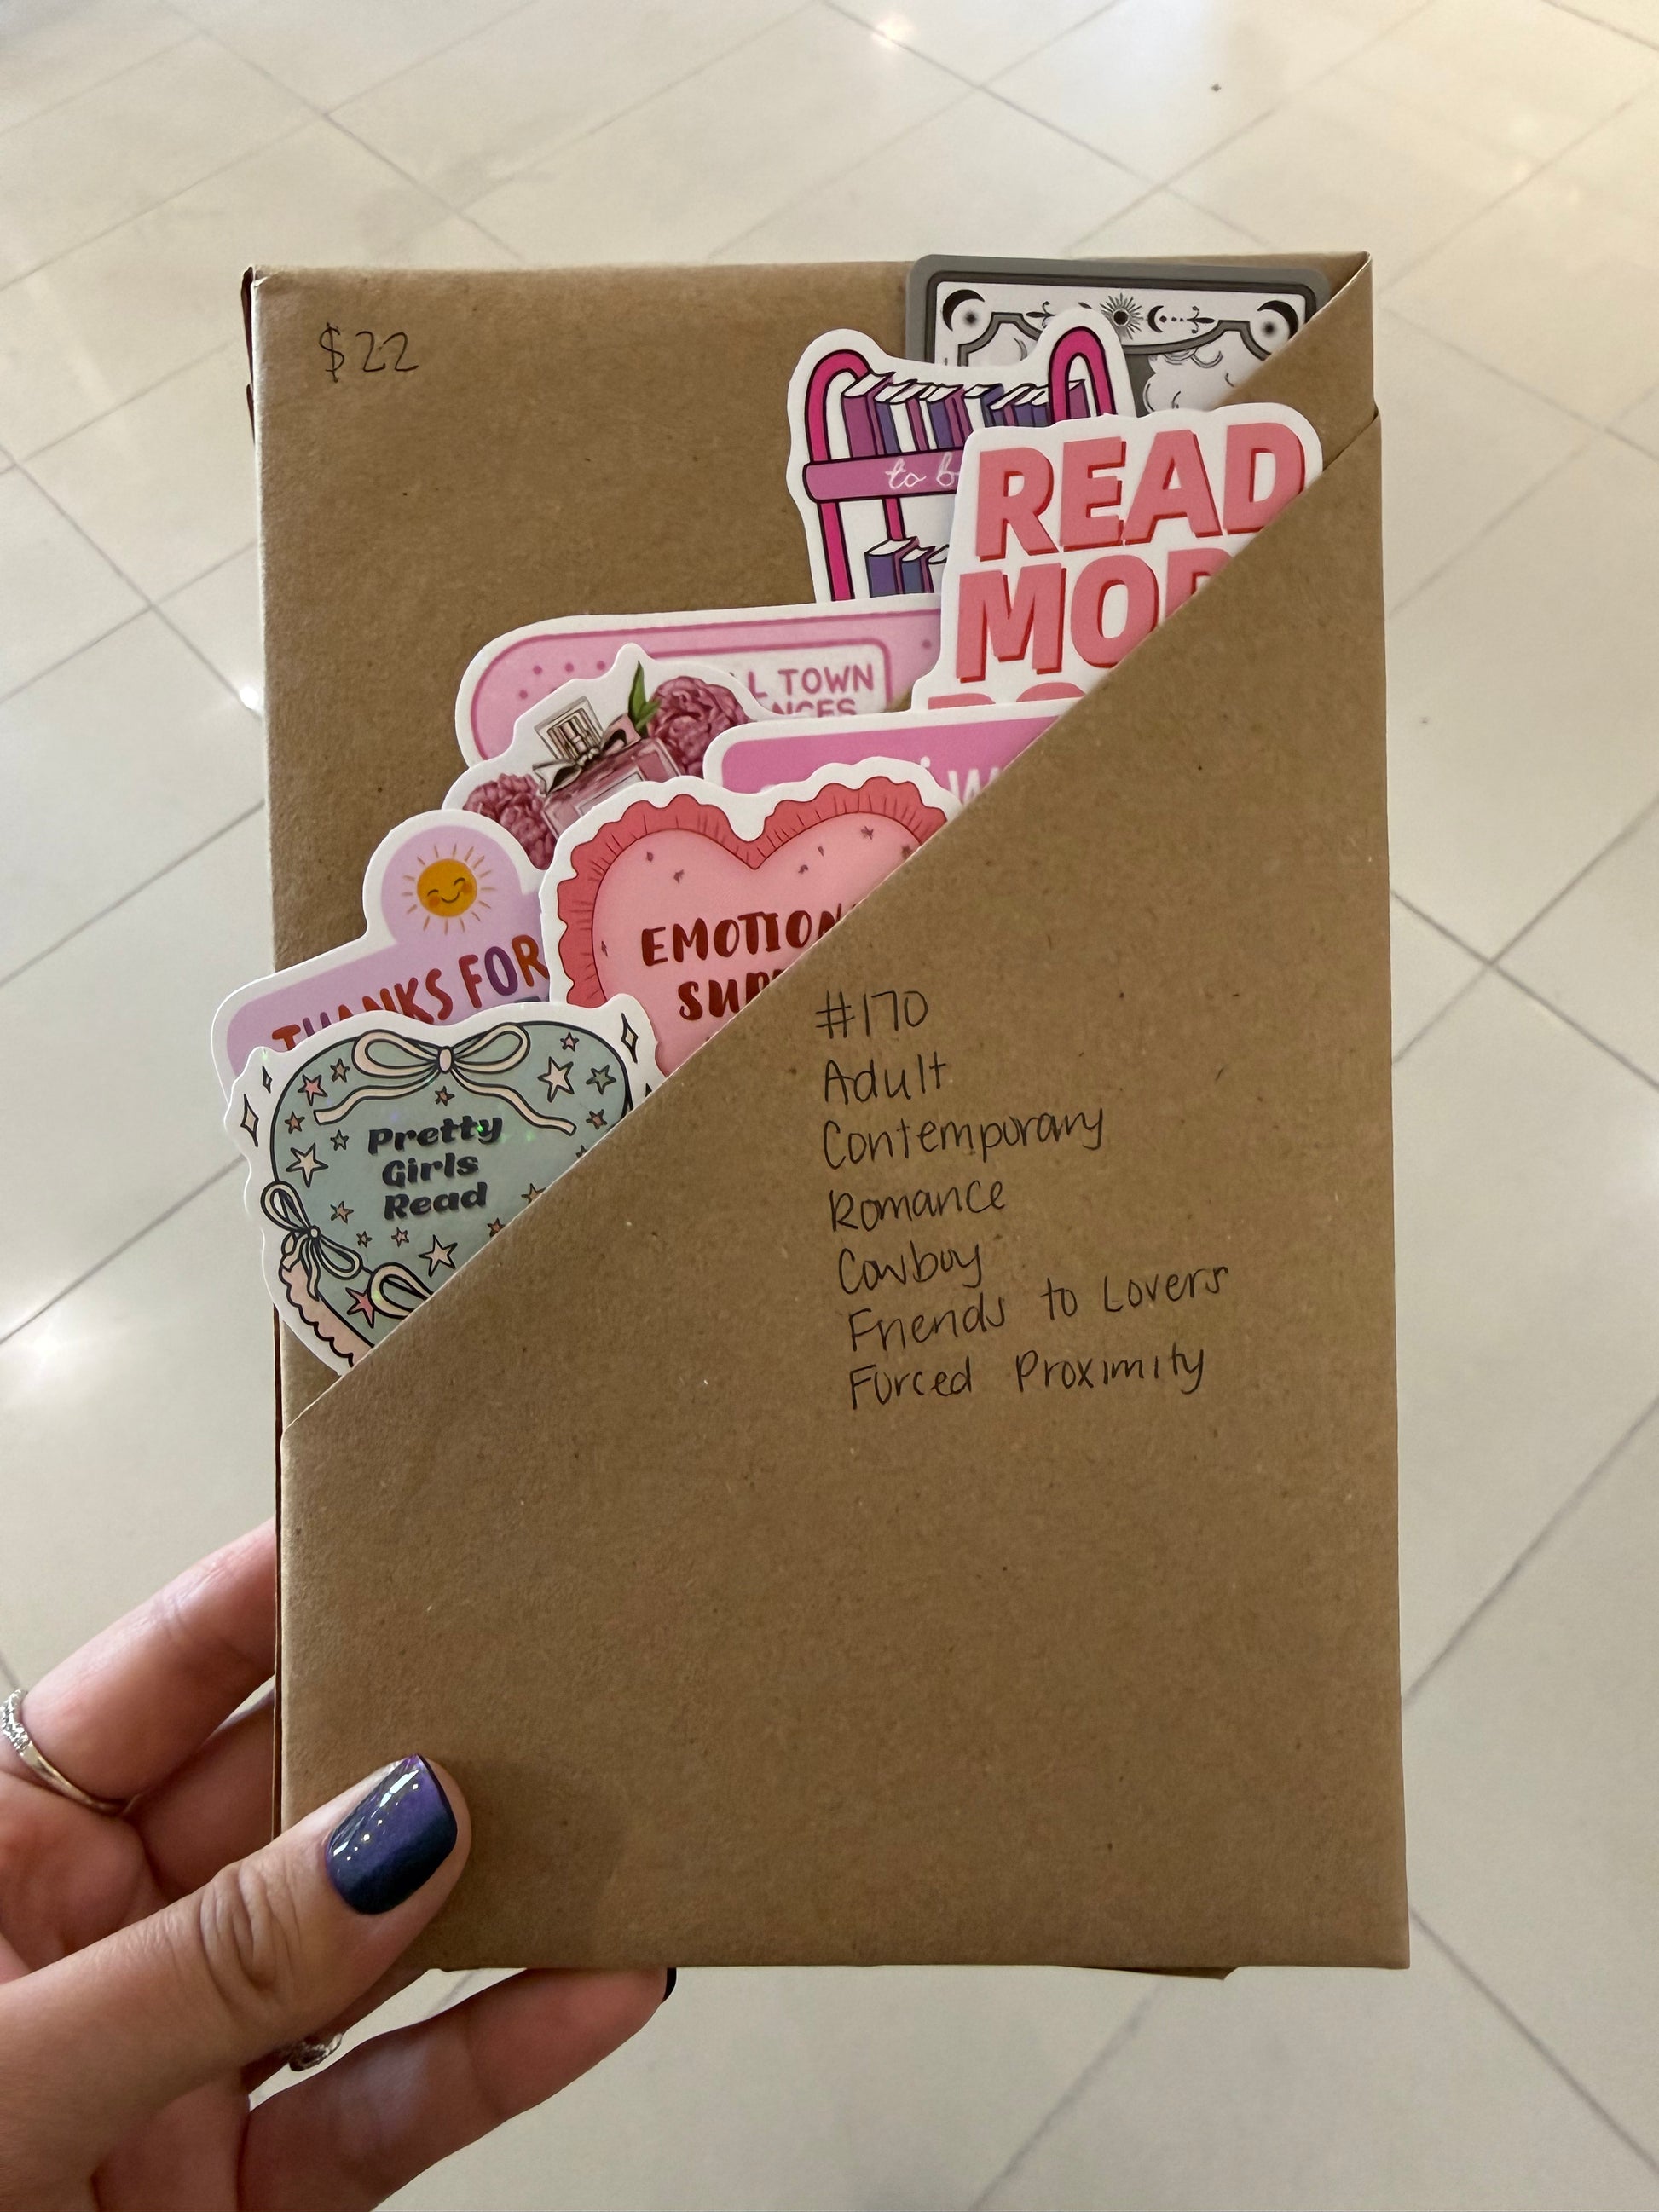 $22
to
READ
TOWN
THANKS FOR
Pretty
Girls
Read
#170
Adult
Contemporary
Romance
Cowboy
Friends to Lovers
Forced Proximity